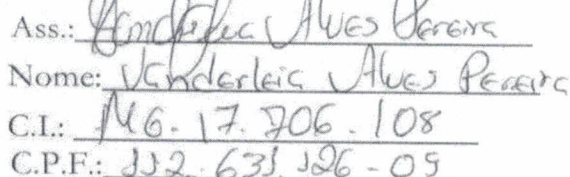 Ass.: Vanderleia Alves Pereira
Nome: Vanderleia Alves Pereira
C.I.: MG. 17.706.108
C.P.F.: 112.631.126-09